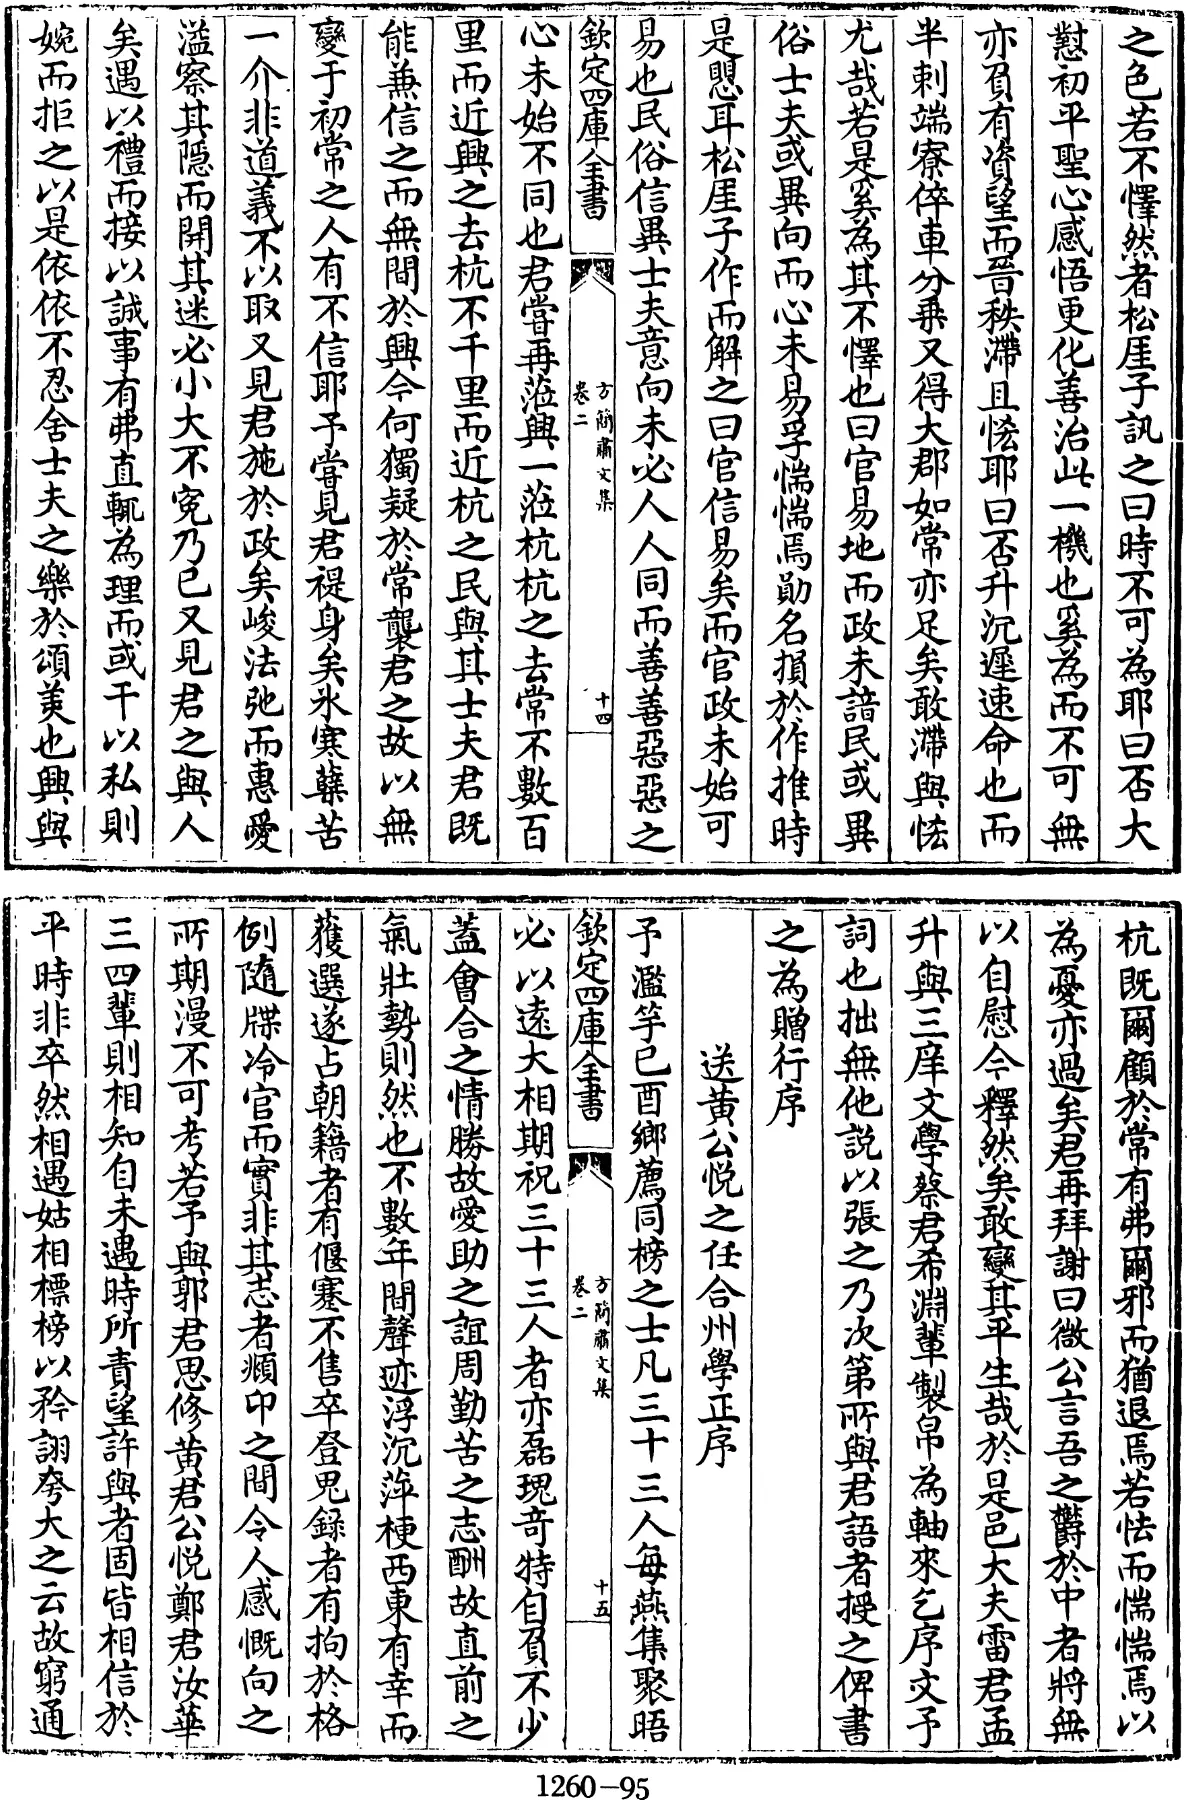 之色若不懌然者松厓子訊之曰時不可為耶曰否大
懟初平聖心感悟更化善治此一機也奚為而不可無
亦負有資望而晉秩滯且恡耶曰否升沉遲速命也而
半刺端寮倅車分乗又得大郡如常亦足矣敢滯與恡
尤哉若是奚為其不懌也曰官易地而政未諳民或異
俗士夫或異向而心未易孚惴惴焉勛名損於作推時
是愳耳松厓子作而解之曰官信易矣而官政未始可
易也民俗信異士夫意向未必人人同而善善惡惡之
欽定四庫全書
方簡肅文集
卷二
十四
心未始不同也君嘗再蒞興一蒞杭杭之去常不數百
里而近興之去杭不千里而近杭之民與其士夫君既
能兼信之而無間於興今何獨疑於常襲君之故以無
變于初常之人有不信耶予嘗見君禔身矣氷寒蘖苦
一介非道義不以取又見君施於政矣峻法弛而惠愛
溢察其隱而開其迷必小大不寃乃已又見君之與人
矣遇以禮而接以誠事有弗直輒為理而或干以私則
婉而拒之以是依依不忍舍士夫之樂於頌美也興與
杭既爾顧於常有弗爾邪而猶退焉若怯而惴惴焉以
為憂亦過矣君再拜謝曰微公言吾之欝於中者將無
以自慰今釋然矣敢變其平生哉於是邑大夫雷君孟
升與三庠文學蔡君希淵輩製帛為軸來乞序文予
詞也拙無他説以張之乃次第所與君語者授之俾書
之為贈行序
送黄公悦之任合州學正序
予濫竽已酉鄉薦同榜之士凡三十三人每燕集聚晤
欽定四庫全書
方簡肅文集
卷二
十五
必以逺大相期祝三十三人者亦磊瑰竒特自負不少
葢會合之情勝故愛助之誼周勤苦之志酬故直前之
氣壯勢則然也不數年間聲迹浮沉萍梗西東有幸而
獲選遂占朝籍者有偃蹇不售卒登鬼録者有拘於格
例隨牒冷官而實非其志者頫卬之間令人感慨向之
所期漫不可考若予與郭君思修黄君公悦鄭君汝華
三四輩則相知自未遇時所責望許與者固皆相信於
平時非卒然相遇姑相標榜以矜詡夸大之云故窮通
1260-95